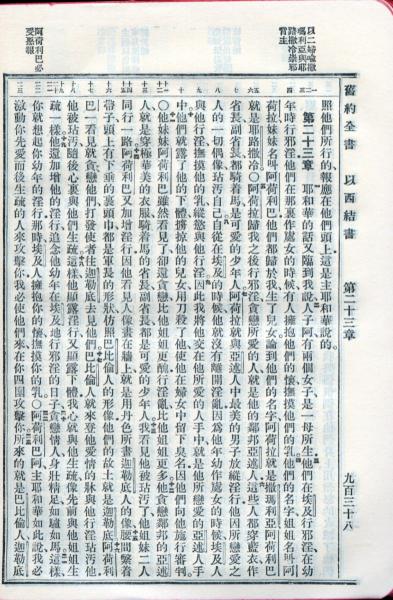 舊約全書 以西結書 第二十三章 九百三十八
以二婦喻撒
瑪利亞與耶
路撒冷崇邪
背主
阿荷利巴必
受惡報
照他們所行的報應在他們頭上這是主耶和華說的
第二十三章 耶和華的話又臨到我說人子阿有兩個女子是一母所生他們在埃及行邪淫在幼
年時行邪淫他們在那裏作處女的時候有人擁抱他們的懷撫摸他們的乳他們的名字姐姐名叫阿
荷拉妹妹名叫阿荷利巴他們都歸於我生了兒女論到他們的名字阿荷拉就是撒瑪利亞阿荷利巴
就是耶路撒冷○阿荷拉歸我之後行邪淫貪戀所愛的人就是他的鄰邦亞述人這些人都穿藍衣作
省長副省長都騎着馬是可愛的少年人阿荷拉就與亞述人中最美的男子放縱淫行他因所戀愛之
人的一切偶像玷污自己自從在埃及的時候他就沒有離開淫亂因為他年幼作處女的時候埃及人
與他行淫撫摸他的乳縱慾與他行淫因此我將他交在他所愛的人手中就是他所戀愛的亞述人手
中他們就露了他的下體擄掠他的兒女用刀殺了他使他在婦女中留下臭名因他們向他施行審判
○他妹妹阿荷利巴雖然看見了卻還貪戀比他姐姐更醜行淫亂比他姐姐更多他貪戀鄰邦的亞述
人就是穿極華美的衣服騎着馬的省長副省長都是可愛的少年人我看見他被玷污了他姐妹二人
同行一路阿荷利巴又加增淫行因他看見人像畫在牆上就是用丹色所畫迦勒底人的像腰間繫着
帶子頭上有下垂的裹頭巾都是軍長的形狀仿照巴比倫人的形像他們的故土就是迦勒底阿荷利
巴一看見就貪戀他們打發使者往迦勒底去見他們巴比倫人就來登他愛情的牀與他行淫玷污他
他被玷污隨後心裏與他們生疏這樣他顯露淫行又顯露下體我心就與他生疏像先前與他姐姐生
疏一樣他還加增他的淫行追念他幼年在埃及地行邪淫的日子貪戀情人身壯精足如驢如馬這樣
你就想起你幼年的淫行那時埃及人擁抱你的懷撫摸你的乳○阿荷利巴阿主耶和華如此說我必
激動你先愛而後生疏的人來攻擊你我必使他們來在你四圍攻擊你所來的就是巴比倫人迦勒底